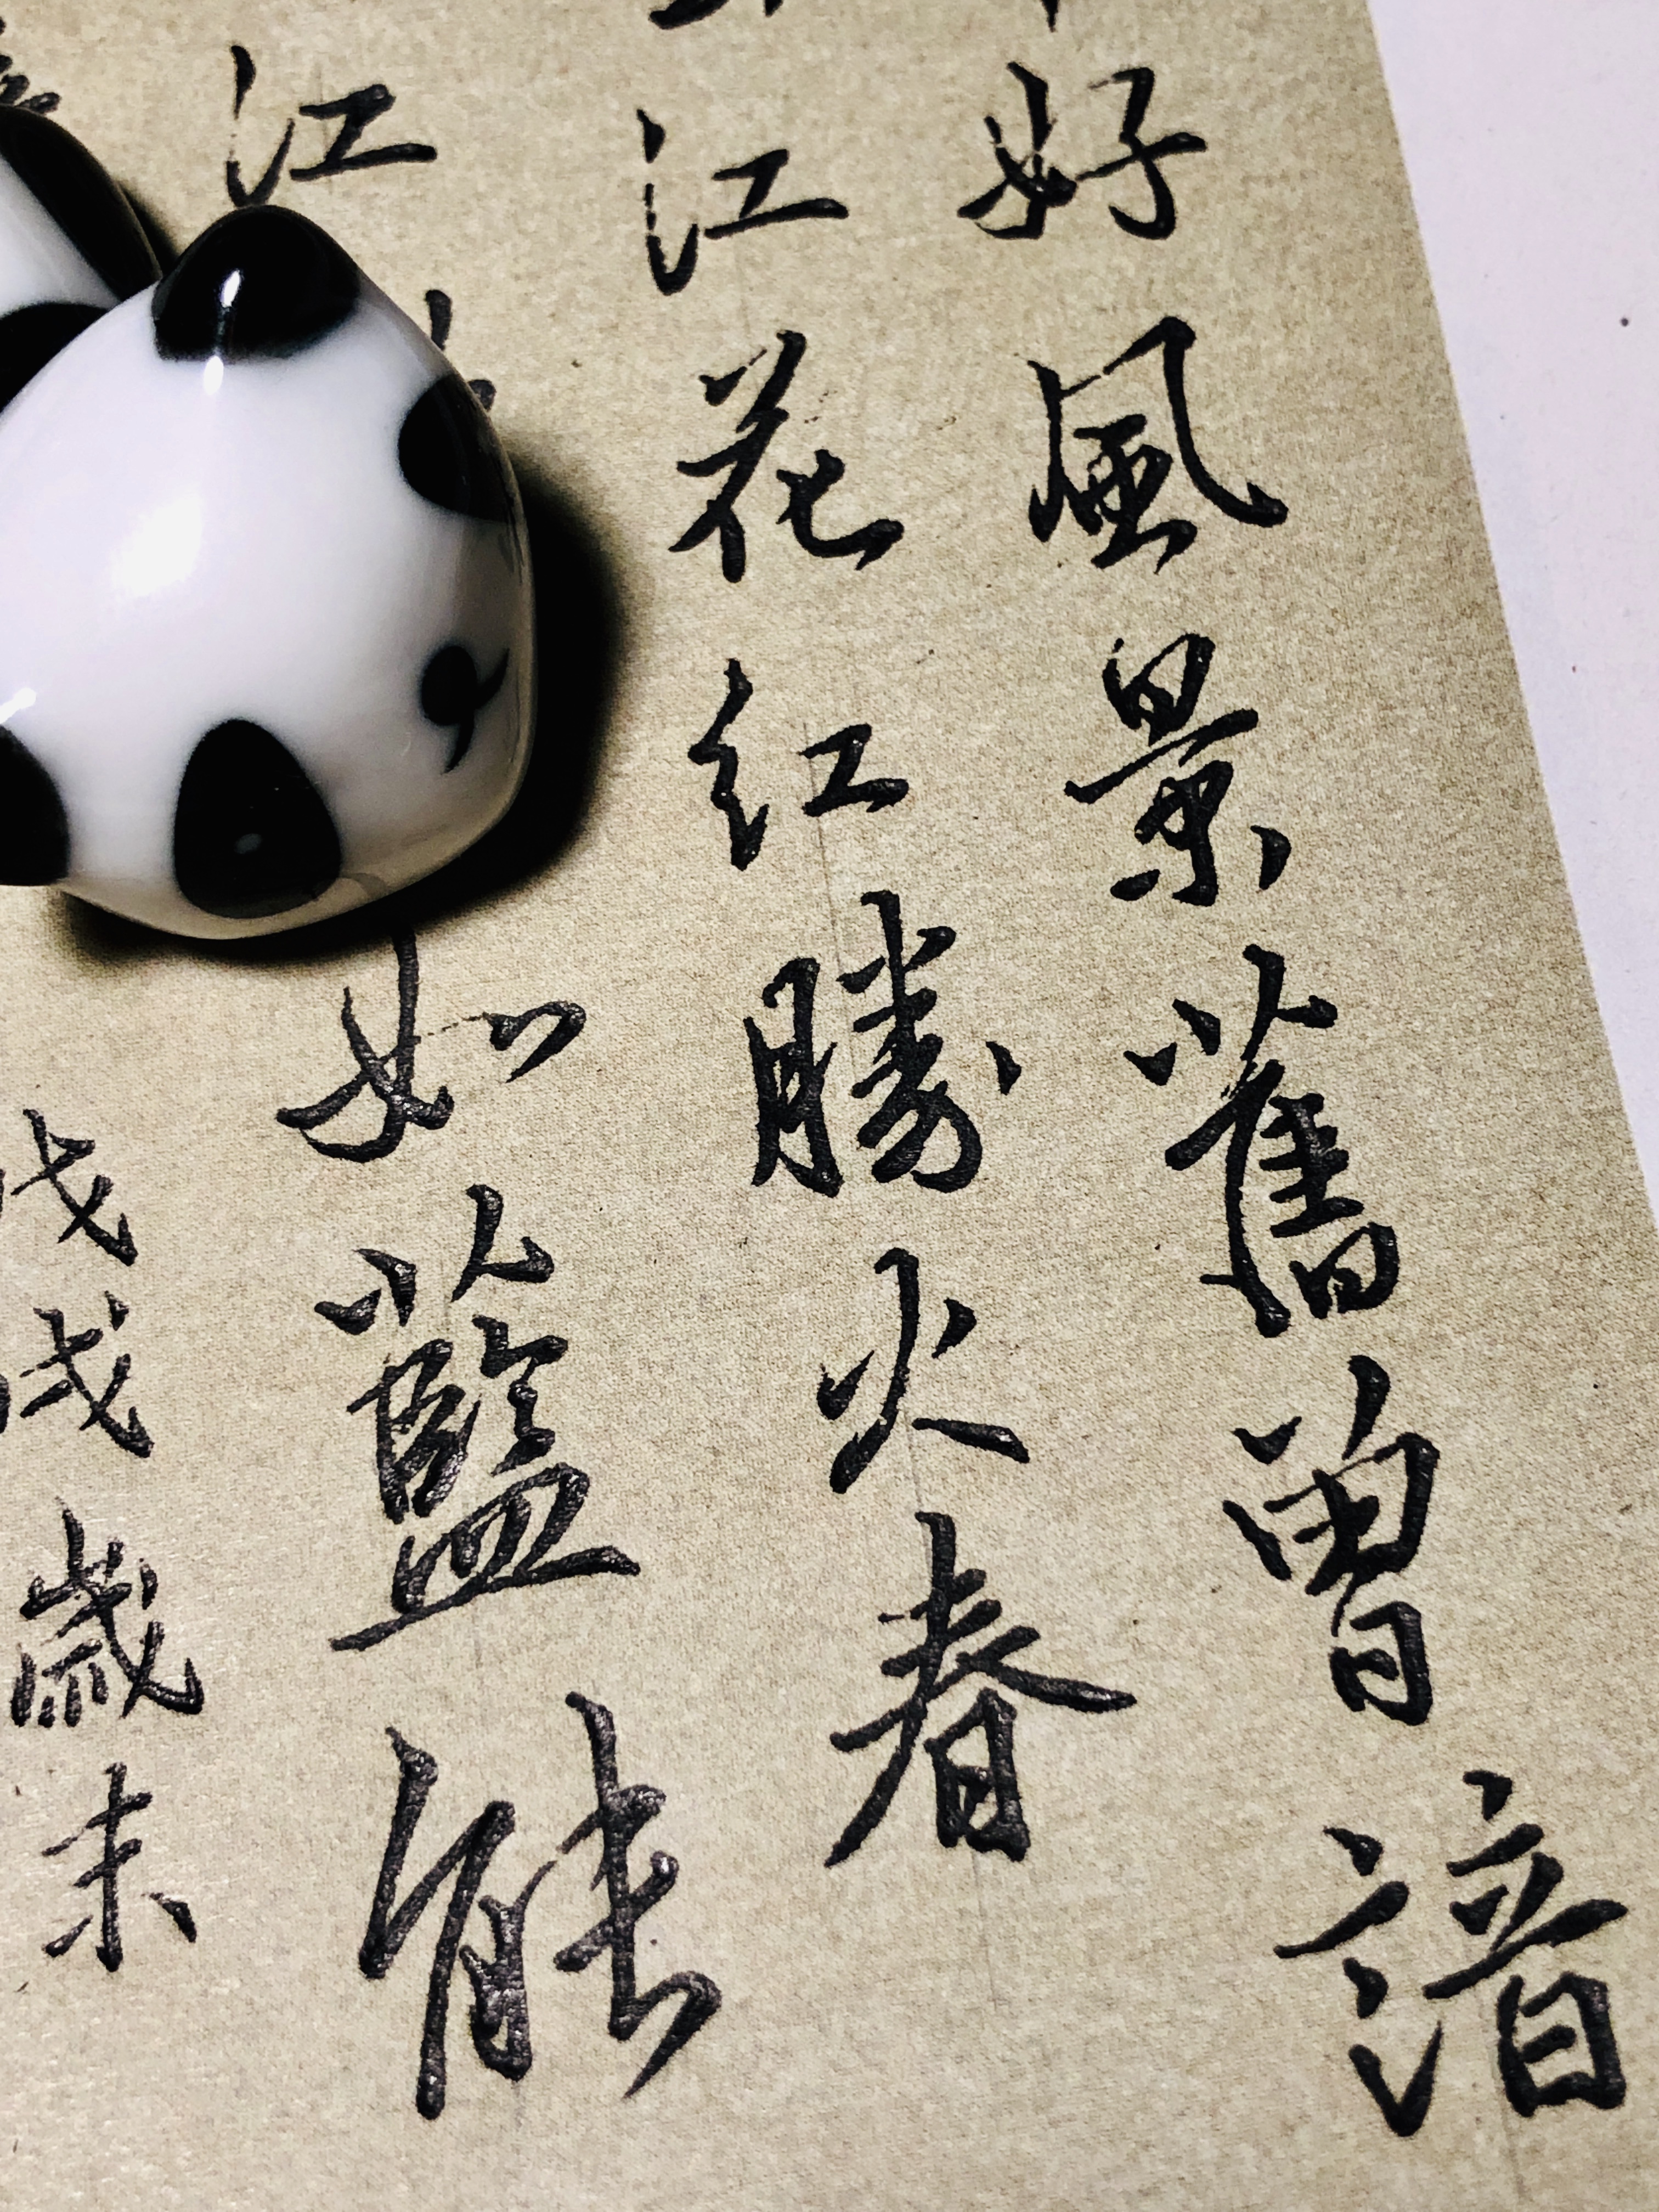 好風景舊曾諳
江花紅勝火春
江如藍能
戊戌歲末